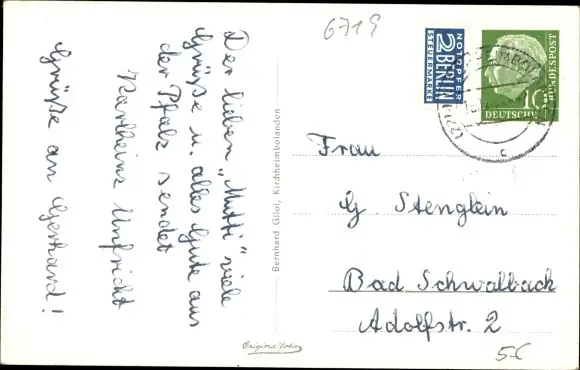 Der lieben „Mutti" viele
Grüße u. alles Gute aus
der Pfalz sendet
Karlheinz Unfricht
Grüße an Gerhard!
Bernhard Gilol, Kirchheimbolanden
Original-Foto
6719
NOTOPFER
2 BERLIN
STEUERMARKE
10
DEUTSCHE
BUNDESPOST
(22
c
Frau
G. Stenglein
Bad Schwalbach
Adolfstr. 2
5€